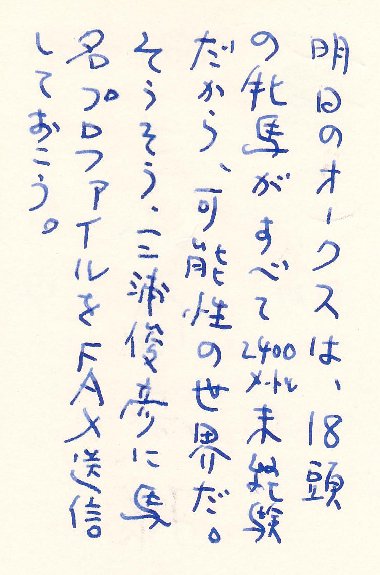 明日のオークスは、18頭
の牝馬がすべて2400メートル未経験
だから、可能性の世界だ。
そうそう、三浦俊彦に馬
名プロファイルをFAX送信
しておこう。